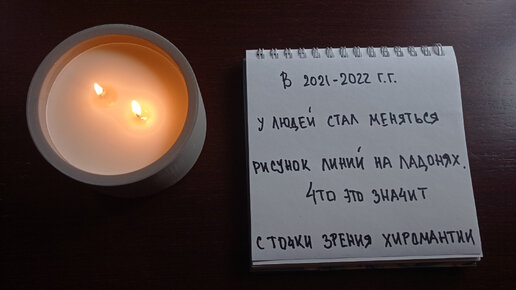 В 2021-2022 Г.Г.
У ЛЮДЕЙ СТАЛ МЕНЯТЬСЯ
РИСУНОК ЛИНИЙ НА ЛАДОНЯХ.
ЧТО ЭТО ЗНАЧИТ
С ТОЧКИ ЗРЕНИЯ ХИРОМАНТИИ